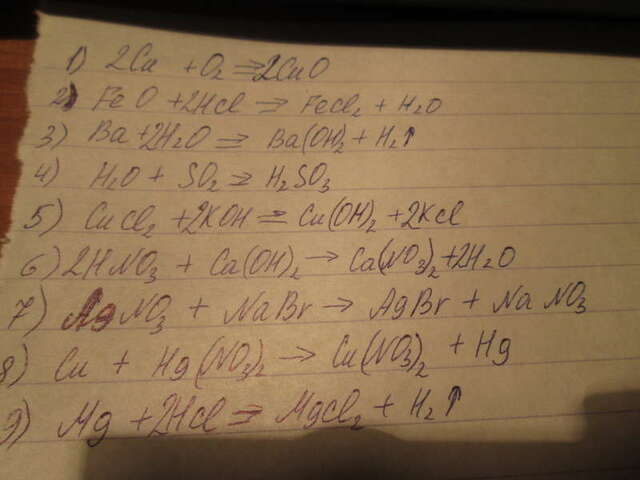 1) 2Cu + O₂ ⇒ 2CuO
2) FeO + 2HCl → FeCl₂ + H₂O
3) Ba + 2H₂O ⇒ Ba(OH)₂ + H₂↑
4) H₂O + SO₂ ⇒ H₂SO₃
5) CuCl₂ + 2KOH = Cu(OH)₂ + 2KCl
6) 2HNO₃ + Ca(OH)₂ → Ca(NO₃)₂ + 2H₂O
7) AgNO₃ + NaBr → AgBr + NaNO₃
8) Cu + Hg(NO₃)₂ → Cu(NO₃)₂ + Hg
9) Mg + 2HCl ⇒ MgCl₂ + H₂↑